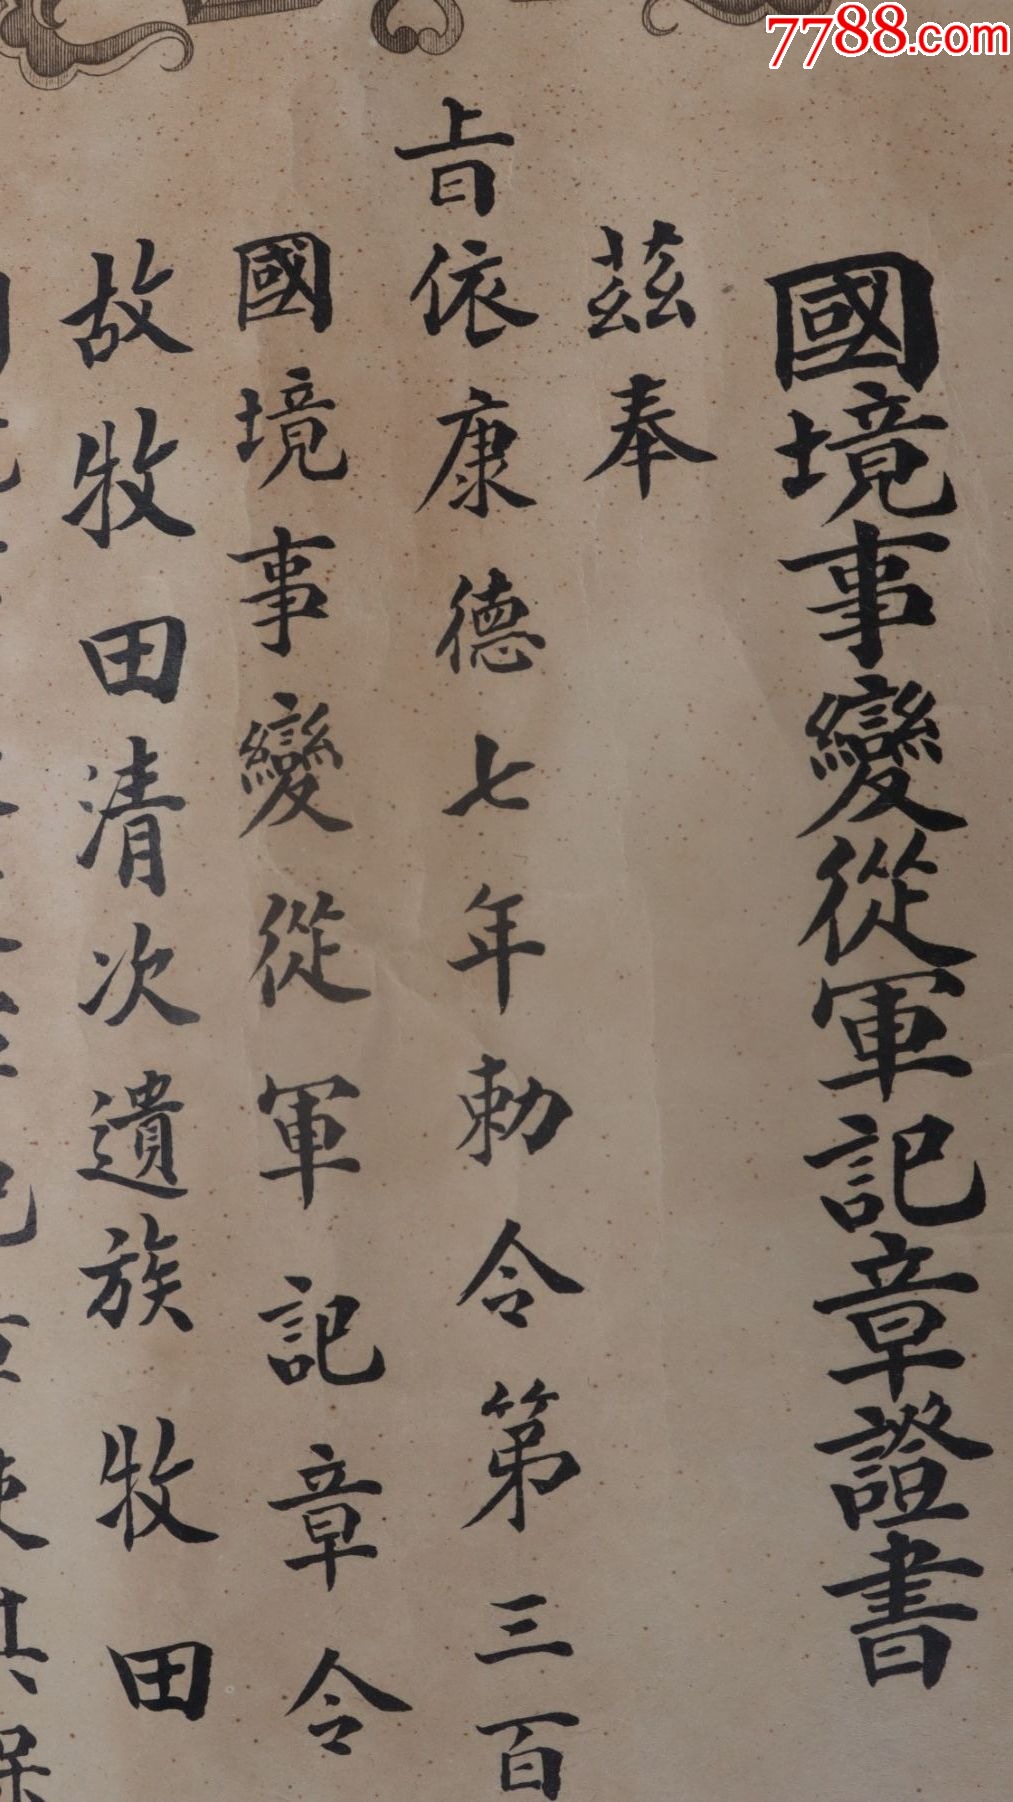 7788.com
國境事變從軍記章證書
茲奉
旨依康德七年勅令第三百
國境事變從軍記章令
故牧田清次遺族牧田